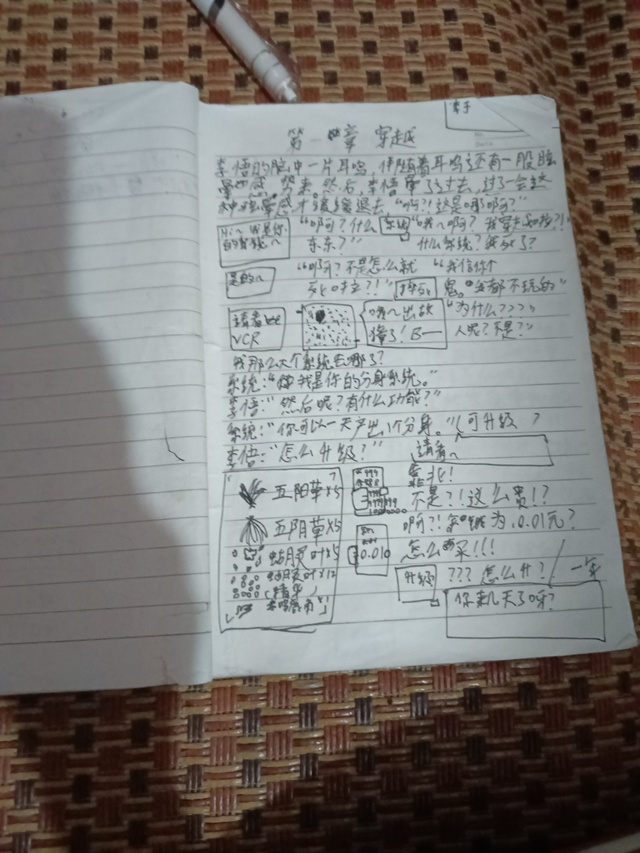 第一章 穿越
李悟的脑中一片耳鸣,伴随着耳鸣还有一股脑
晕感袭来。然后,李悟晕了过去,过了一会这
种晕感才缓缓退去,"啊?!这是哪啊?"
Hi~ 我是你的系统~
"啊?什么东东?"
"哦~啊?我穿越啦?!什么系统?我死了?
是的~
"啊?不是怎么就死啦?!"
"我信你个鬼。
請看
VCR
哦~出故
"为什么????
人呢?不是?"
我那么大个系统去哪了?
系统:"我是你的分身系统。"
李悟:"然后呢?有什么功能?"
系统:"你可以一天产出1个分身。"(可升级?
李悟:"怎么升级?"
請看~
五阳草x5
靠北!
不是?!这么贵!?
五阴草x5
啊?!余额为0.01元?
0.010
怎么买!!!
升级
???怎么升?
你来几天了呀?